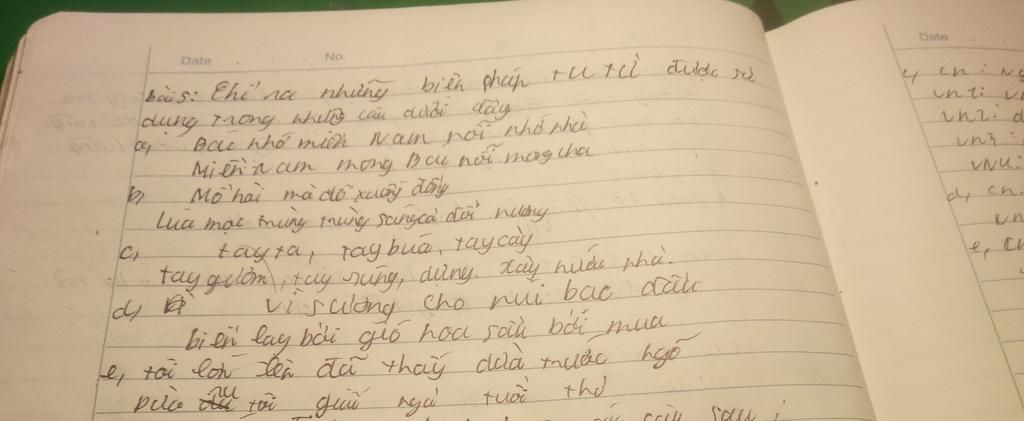 Date No.
bài 5: Chỉ ra những biện pháp tu từ được sử
dụng trong những câu dưới đây
a, Bác nhớ miền Nam nỗi nhớ nhà
Miền Nam mong Bác nỗi mong cha
b, Mồ hôi mà đổ xuống đồng
Lúa mọc trùng trùng sáng cả đồi nương
c, tay ta, tay búa, tay cày
tay gươm, tay súng, dựng xây nước nhà.
d, Vì sương cho núi bạc đầu
biển lay bởi gió hoa sầu bởi mưa
e, tôi lớn lên đã thấy dừa trước ngõ
Dừa ru tôi giấc ngủ tuổi thơ
câu sau:
Date
c, CN:
VN1:
VN2:
VN3:
VN4:
d, CN
VN
e, CN